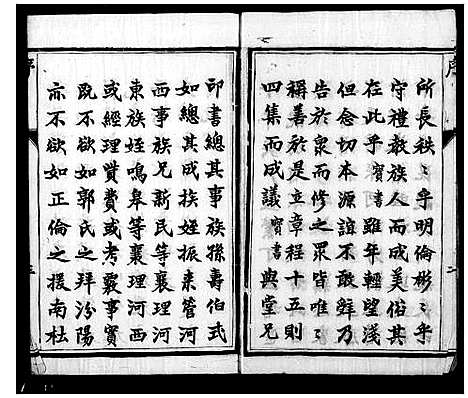 序
所長秩〻乎明倫彬〻乎
守禮教族人而成美俗其
在此乎寶書雖年輕望淺
但念切本源誼不敢辭乃
告於衆而修之眾皆唯〻
稱善於是立章程十五則
四集而成議寶書與堂兄
印書總其事族孫壽伯武
如總其成族姪振東管河
西事族兄新民等襄理河
東族姪鳴皋等襄理河西
或經理貲費或考覈事實
既不欲如郭氏之拜汾陽
亦不欲如正倫之援南杜
序
三